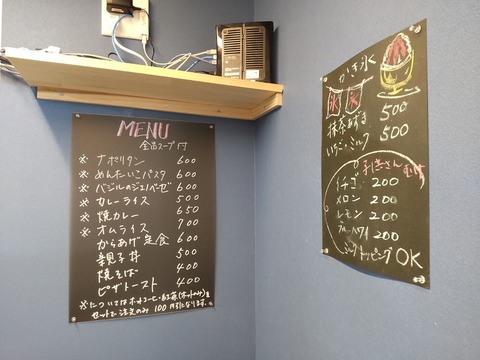 MENU
全品スープ付
※ ナポリタン 600
※ めんたいこパスタ 600
※ バジルのジェノベーゼ 600
※ カレーライス 500
※ 焼カレー 650
※ オムライス 700
からあげ定食 600
親子丼 500
焼そば 400
ピザトースト 400
※については ホットコーヒー・紅茶(ホットのみ)を
セットで注文のみ 100円引になります。
かき氷
氷 氷
抹茶あずき 500
いちご・ミルク 500
お子さん向け
イチゴ 200
メロン 200
レモン 200
ブルーハワイ 200
ミルクトッピング OK